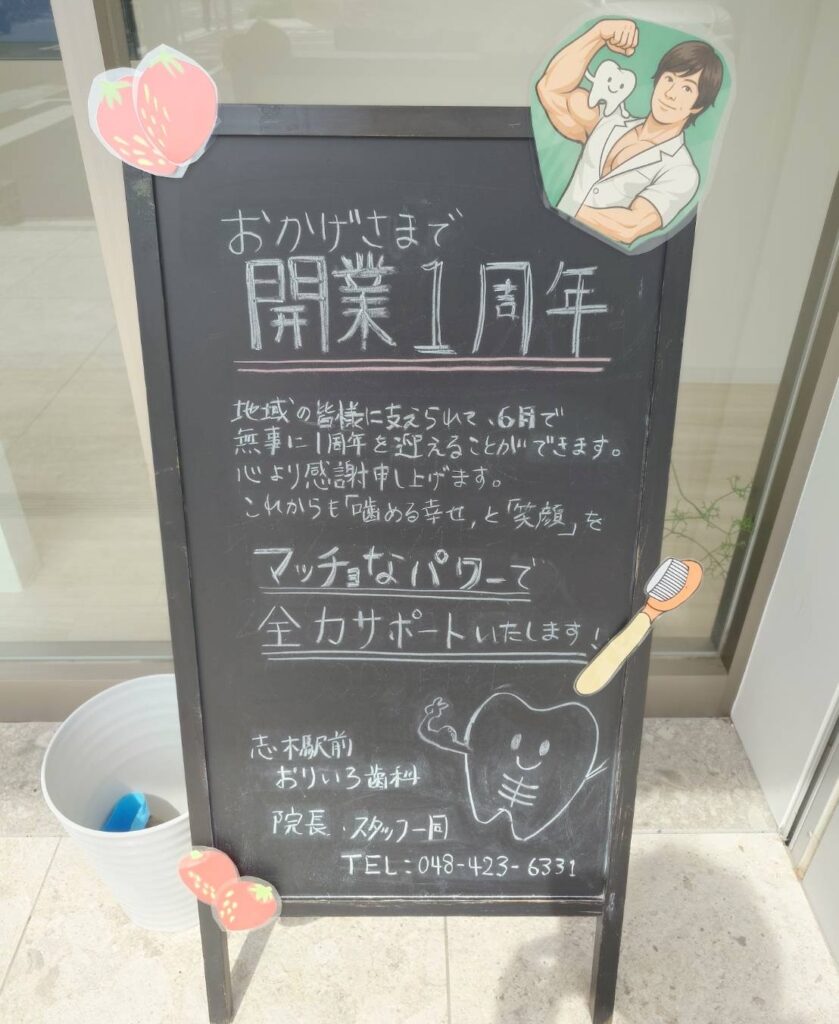 おかげさまで
開業1周年
地域の皆様に支えられて、6月で
無事に1周年を迎えることができます。
心より感謝申し上げます。
これからも「噛める幸せ」と「笑顔」を
マッチョなパワーで
全力サポートいたします!
志木駅前
おりいろ歯科
院長・スタッフ一同
TEL:048-423-6331